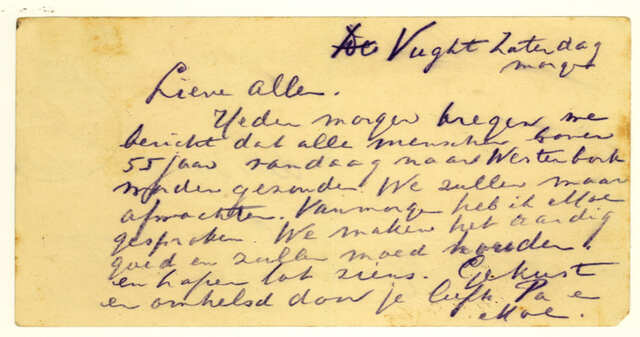 Vught Zaterdag
morgen
Lieve allen.
Heden morgen kregen we
bericht dat alle menschen boven
55 jaar vandaag naar Westerbork
worden gezonden. We zullen maar
afwachten. Vanmorgen heb ik Moe
gesproken. We maken het aardig
goed en zullen moed houden.
en hopen tot ziens. Gekust
en omhelsd door je liefh. Pa en
Moe.